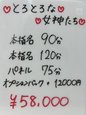 ♡とろとろな♡
女神たち♡
本指名 90分
本指名 120分
パネル 75分
オプションバック + 12000円
¥58.000